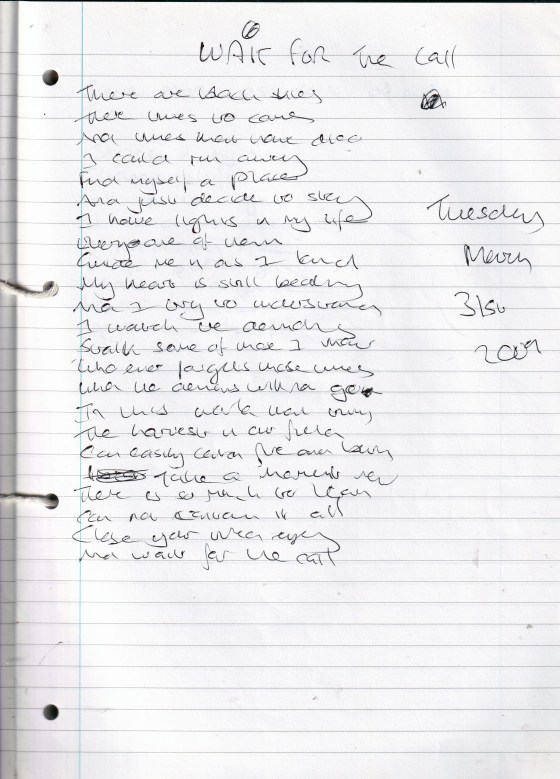 6
WAIT FOR The Call
There are black skies
There times to come
And times that have died
I could run away
Find myself a place
And just decide to stay
I have lights in my life
Everyone of them
Guide me in as I
My heart is still beating
And I try to understand
I watch the demons
Stalk some of those I know
Who ever forgets those times
When the demons within
In this world
The harvest in our fields
Can easily catch fire and burn
Take a moment now
There is so much to learn
Can not it all
Close your inner eyes
And wait for the call
Tuesday
March
31st
2009